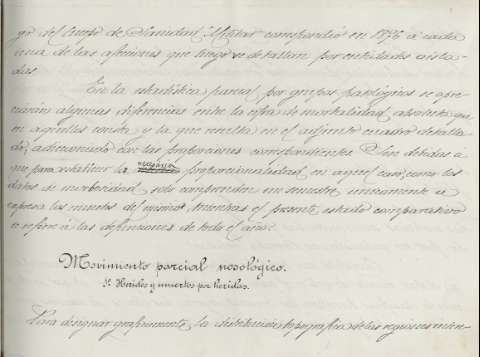 ger del Cuerpo de Sanidad Militar correspondió en 1896 á cada
una de las afecciones que luego se detallan por entidades aisla-
das.
En la estadística parcial por grupos patológicos se apre-
ciarán algunas diferencias entre la cifra de mortalidad absoluta que
en aquellos consta y la que resulta en el adjunto cuadro detalla-
do, adicionado con las proporciones correspondientes. Son debidas á
que para establecer la necesaria proporcionalidad en aquel caso, como los
datos de morbosidad solo comprenden un semestre, únicamente se
expresa los muertos del mismo, mientras el presente estado comparativo
se refiere á las defunciones de todo el año.
Movimiento parcial nosológico.
Heridos y muertos por heridas.
Para designar gráficamente la distribución topográfica de las regiones